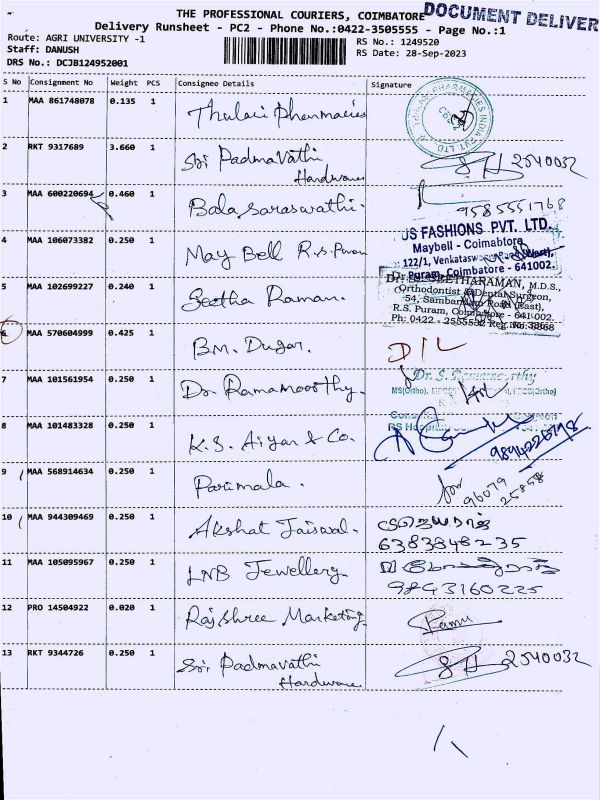 THE PROFESSIONAL COURIERS, COIMBATORE
DOCUMENT DELIVER
Delivery Runsheet - PC2 - Phone No.:0422-3505555 - Page No.:1
Route: AGRI UNIVERSITY -1
RS No.: 1249520
Staff: DANUSH
RS Date: 28-Sep-2023
DRS No.: DCJB124952001
S No Consignment No Weight PCS Consignee Details Signature
1 MAA 861748078 0.135 1 Thulasi Pharmacies
2 RKT 9317689 3.660 1 Sri Padmavathi Hardware 2540032
3 MAA 600220694 0.460 1 Bala Saraswathi. 9585551768
US FASHIONS PVT. LTD.
Maybell - Coimabtore
4 MAA 106073382 0.250 1 May Bell R.S. Puram
122/1, Venkatasw
Puram, Coimbatore - 641002.
5 MAA 102699227 0.240 1 Seetha Raman.
SEETHARAMAN, M.D.S.,
Orthodontist & Dental Surgeon,
54, Sambandam Road (East),
R.S. Puram, Coimbatore - 641 002.
Ph: 0422 - 2555532 Reg. No:
6 MAA 570604999 0.425 1 BM. Dugar. D/L
7 MAA 101561954 0.250 1 Dr. Ramamoorthy.
Dr. S. Ramamoorthy
MS(Ortho),
8 MAA 101483328 0.250 1 K.S. Aiyar & Co.
RS
9 MAA 568914634 0.250 1 Parimala. for 96079 25858
10 MAA 944309469 0.250 1 Akshat Jaiswal. 6383848235
11 MAA 105095967 0.250 1 LNB Jewellery 9843160225
12 PRO 14504922 0.020 1 Rajshree Marketing Ramu
13 RKT 9344726 0.250 1 Sri Padmavathi Hardware 2540032